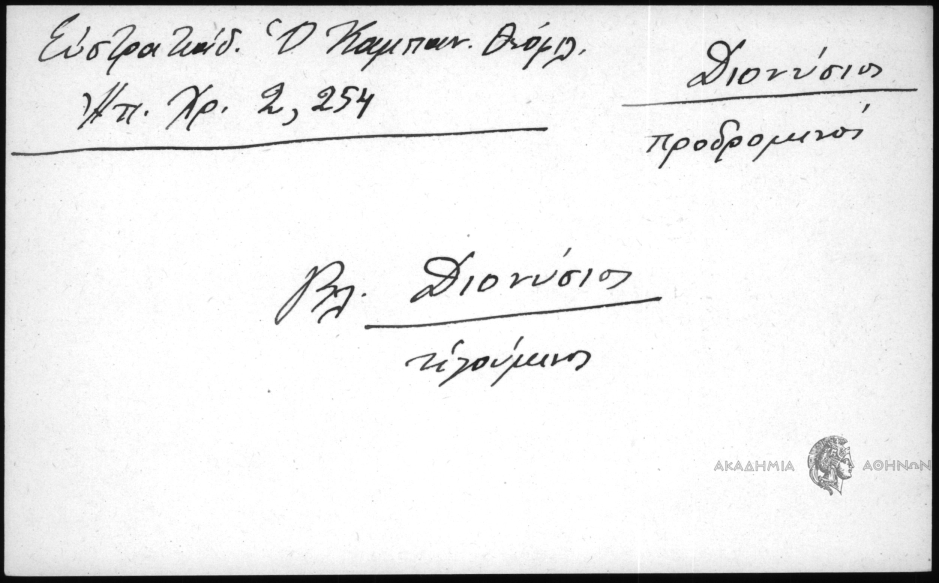 Εὐστρατιάδ. Ὁ Καμπαν. Θεόφιλ.
Ἠπ. Χρ. 2, 254
Διονύσιος
προδρομινός
Βλ. Διονύσιος
ἡγούμενος
ΑΚΑΔΗΜΙΑ ΑΘΗΝΩΝ